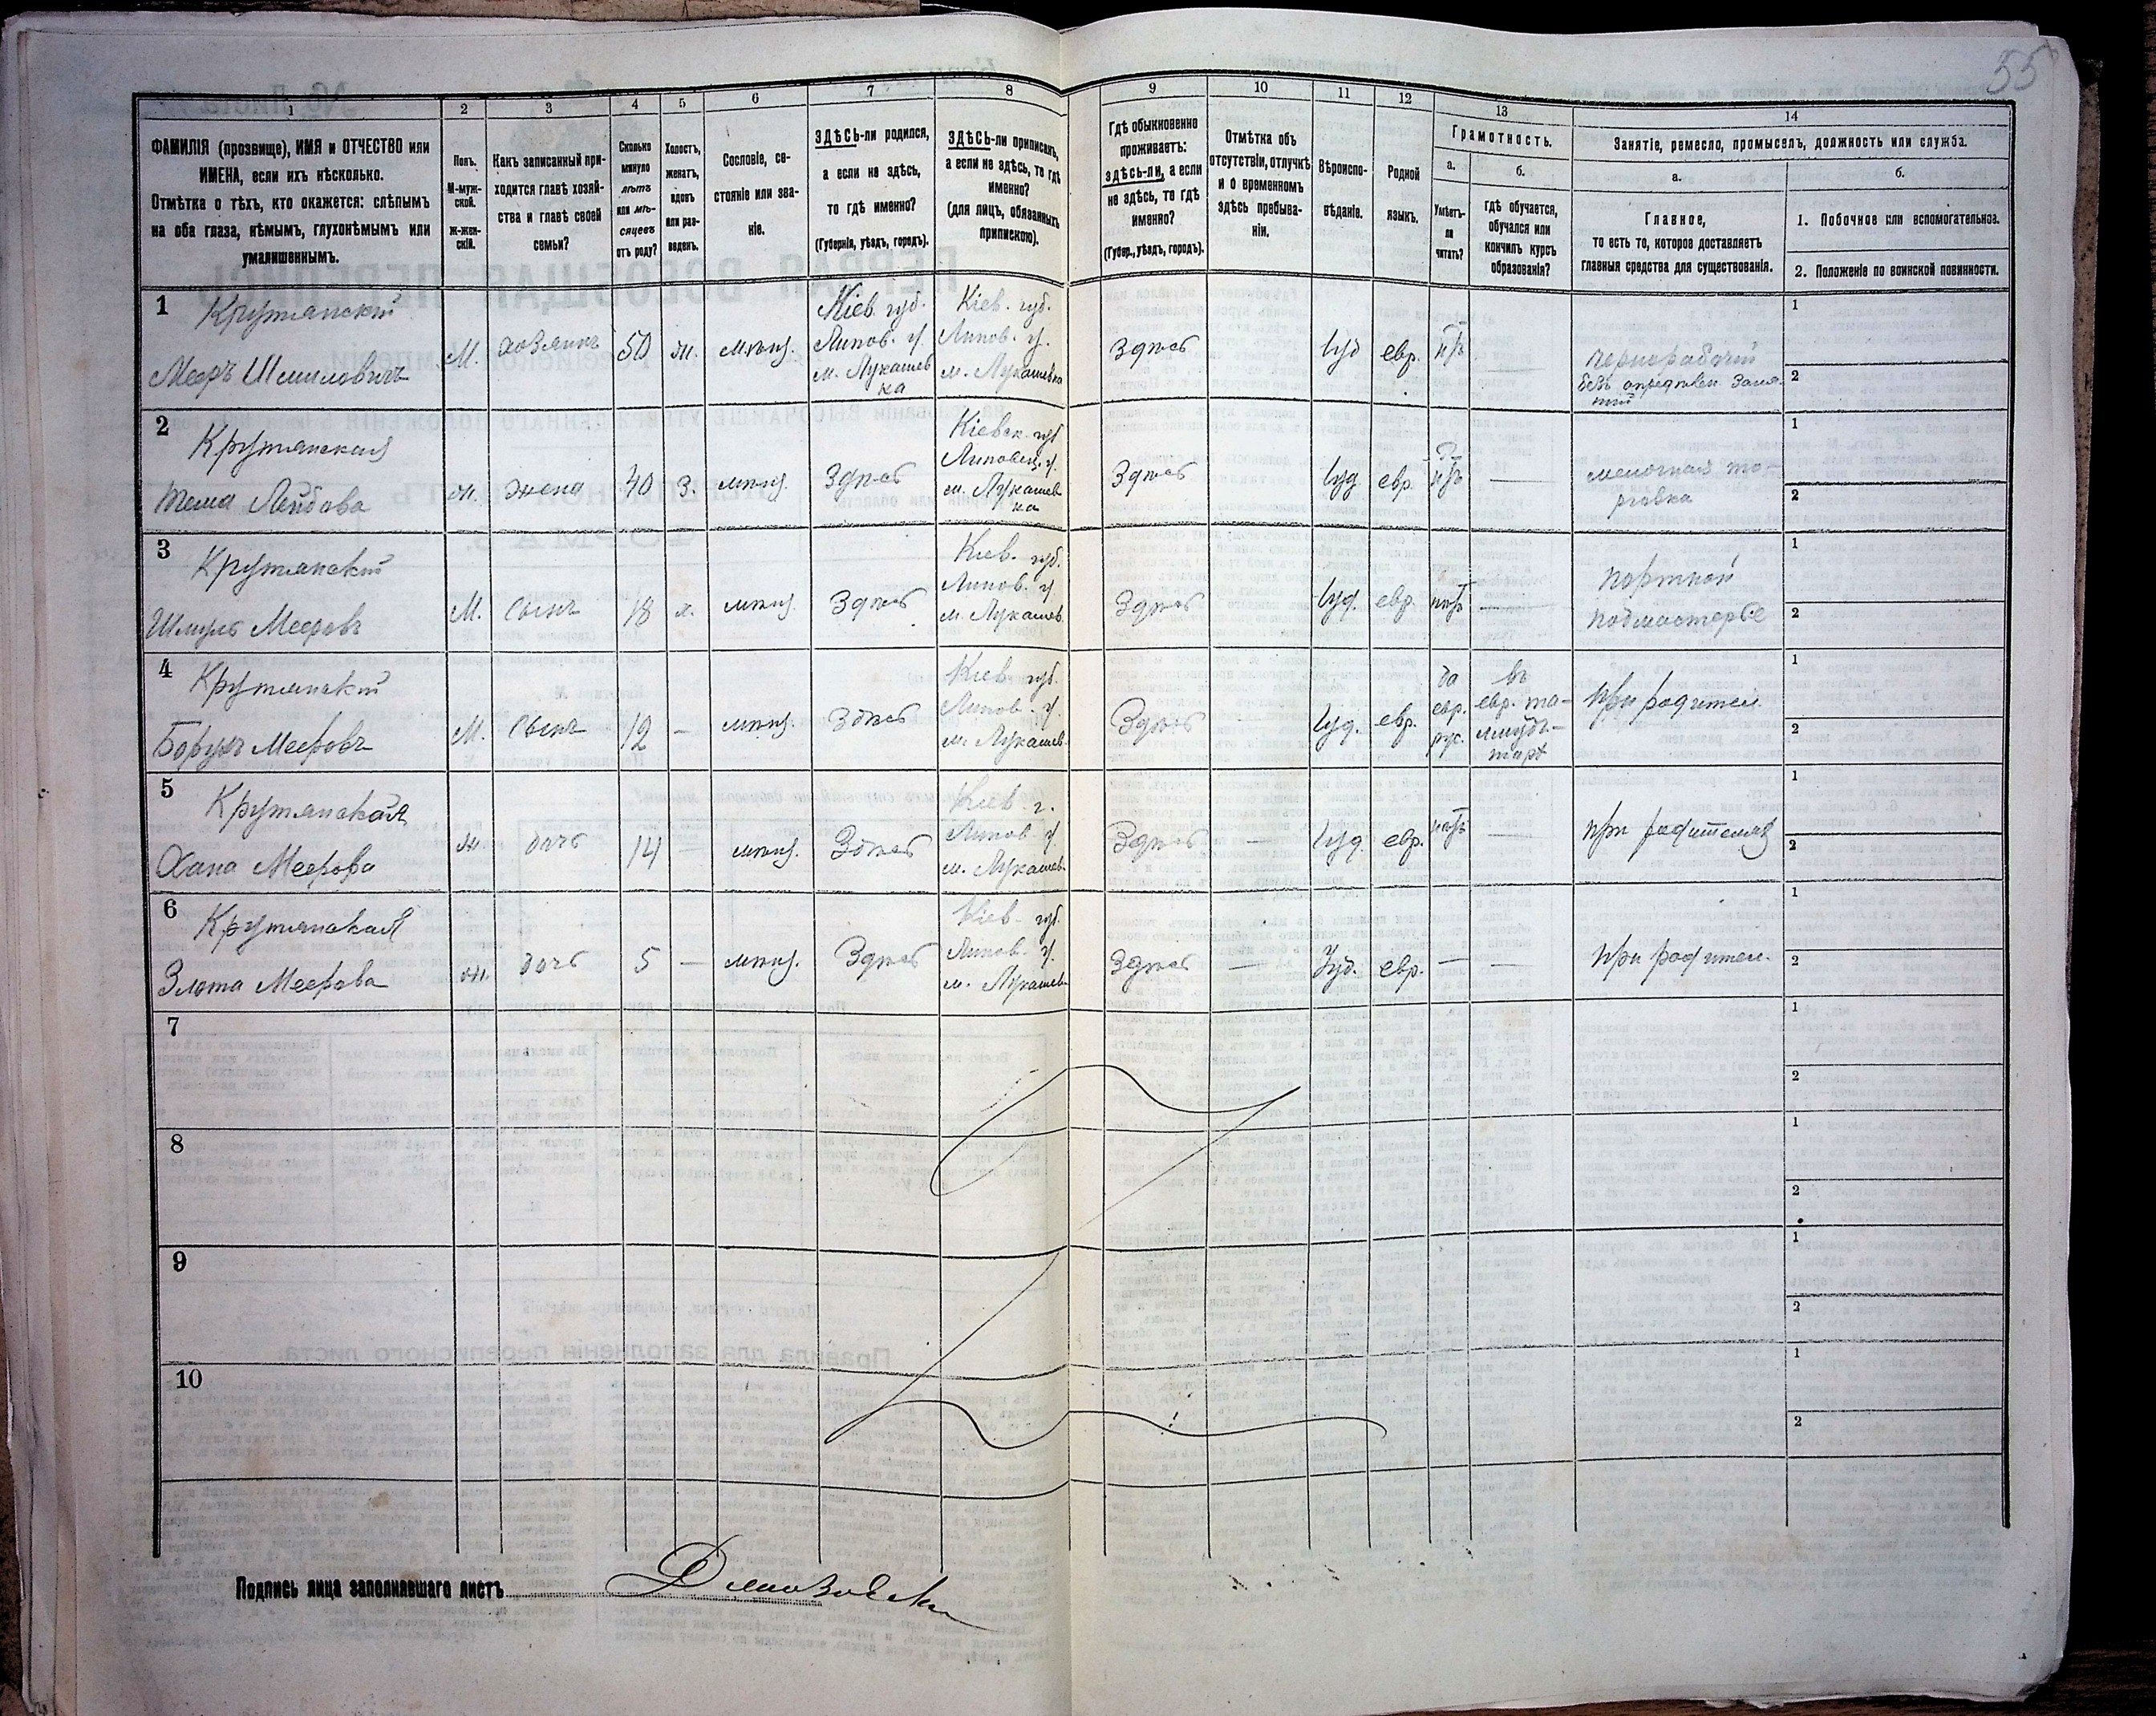 55
1 2 3 4 5 6 7 8 9 10 11 12 13 14
ФАМИЛІЯ (прозвище), ИМЯ и ОТЧЕСТВО или
ИМЕНА, если ихъ нѣсколько.
Отмѣтка о тѣхъ, кто окажется: слѣпымъ
на оба глаза, нѣмымъ, глухонѣмымъ или
умалишеннымъ.
Полъ.
М-муж-
ской.
Ж-жен-
скій.
Какъ записанный при-
ходится главѣ хозяй-
ства и главѣ своей
семьи?
Сколько
минуло
лѣтъ
или мѣ-
сяцевъ
отъ роду?
Холостъ,
женатъ,
вдовъ
или раз-
веденъ.
Сословіе, со-
стояніе или зва-
ніе.
ЗДѢСЬ-ли родился,
а если не здѣсь,
то гдѣ именно?
(Губернія, уѣздъ, городъ).
ЗДѢСЬ-ли приписанъ,
а если не здѣсь, то гдѣ
именно?
(для лицъ, обязанныхъ
припискою).
Гдѣ обыкновенно
проживаетъ:
здѣсь-ли, а если
не здѣсь, то гдѣ
именно?
(Губер., уѣздъ, городъ).
Отмѣтка объ
отсутствіи, отлучкѣ
и о временномъ
здѣсь пребыва-
ніи.
Вѣроиспо-
вѣданіе.
Родной
языкъ.
Грамотность.
а.
Умѣетъ-
ли
читать?
б.
гдѣ обучается,
обучался или
кончилъ курсъ
образованія?
Занятіе, ремесло, промыселъ, должность или служба.
а.
Главное,
то есть то, которое доставляетъ
главныя средства для существованія.
б.
1. Побочное или вспомогательное.
2. Положеніе по воинской повинности.
1
Крутянскій
Меер Шмилович
М.
хозяинъ
50
ж.
мѣщ.
Кіев. губ.
Липов. у.
м. Лукашев
ка
Кіев. губ.
Липов. у.
м. Лукашевка
Здѣсь
Іуд
евр.
чернорабочій
безъ опредѣлен. заня-
тій
1
2
2
Крутянская
Лейбова
ж.
жена
40
З.
мѣщ.
Здѣсь
Кіевск. губ
Липовец. у.
м. Лукашев
ка
Здѣсь
Іуд.
евр.
—
мелочная то-
рговка
1
2
3
Крутянскій
Шмуль Мееров
М.
Сынъ
18
х.
мѣщ.
Здѣсь
Кіев. губ.
Липов. у
м. Лукашев.
Здѣсь
Іуд.
евр.
нѣтъ
—
портной
подмастерье
1
2
4
Крутянскій
Борух Мееровъ
М.
Сынъ
12
—
мѣщ.
Здѣсь
Кіев. губ.
Липов. у.
м. Лукашев.
Здѣсь
—
Іуд.
евр.
да
евр.
рус.
въ
евр. та-
лмудъ-
торѣ
при родител
1
2
5
Крутянская
Хана Меерова
ж.
дочь
14
—
мѣщ.
Здѣсь
Кіев. г.
Липов. у.
м. Лукашев.
Здѣсь
—
Іуд.
евр.
нѣтъ
—
при родителяхъ
1
2
6
Крутянская
Злота Меерова
ж.
дочь
5
—
мѣщ.
Здѣсь
Кіев. губ.
Липов. у.
м. Лукашев.
Здѣсь
—
Іуд.
евр.
—
—
при родител.
1
2
7
1
2
8
1
2
9
1
2
10
1
2
Подпись лица заполнявшаго листъ